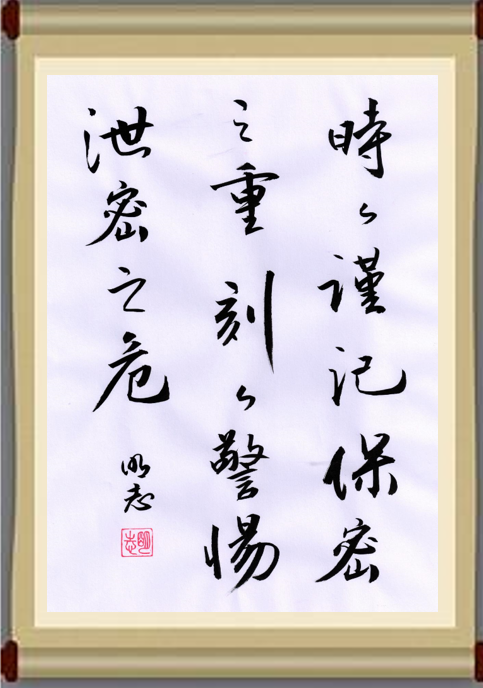 時々謹記保密
之重刻々警惕
泄密之危
明志
明志